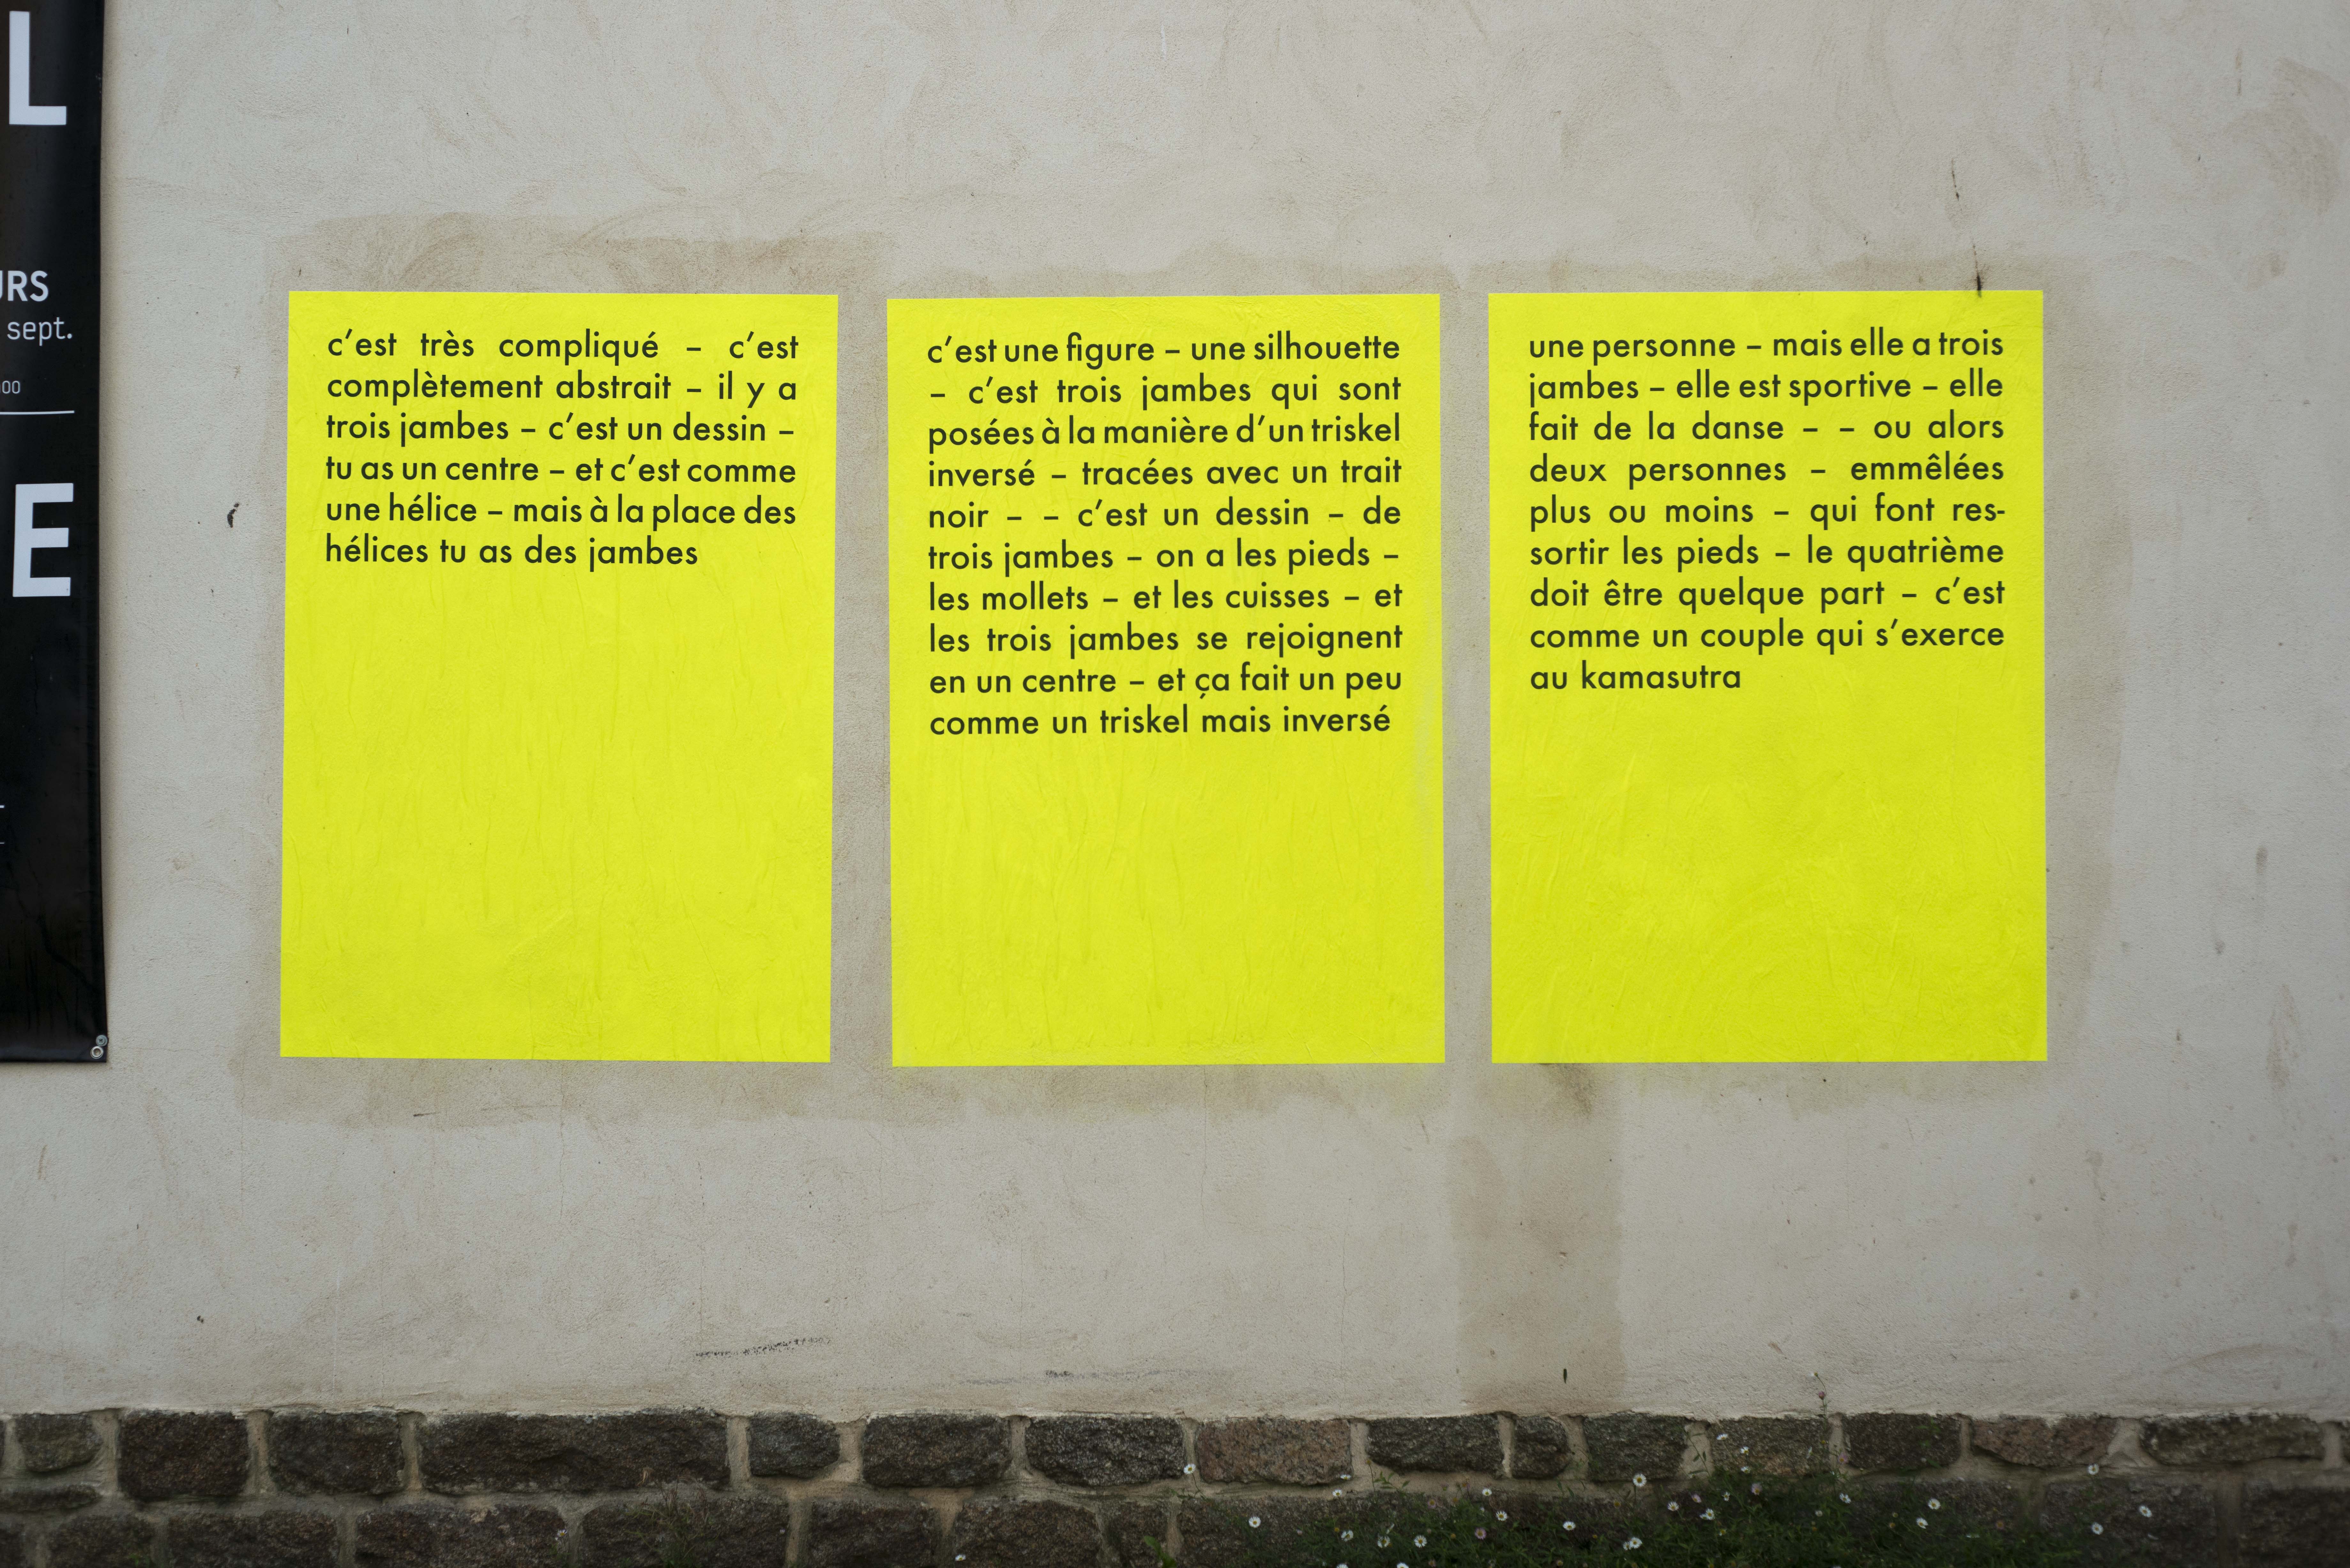 L
URS
sept.
E
c'est très compliqué – c'est
complètement abstrait – il y a
trois jambes – c'est un dessin –
tu as un centre – et c'est comme
une hélice – mais à la place des
hélices tu as des jambes
c'est une figure – une silhouette
– c'est trois jambes qui sont
posées à la manière d'un triskel
inversé – tracées avec un trait
noir – – c'est un dessin – de
trois jambes – on a les pieds –
les mollets – et les cuisses – et
les trois jambes se rejoignent
en un centre – et ça fait un peu
comme un triskel mais inversé
une personne – mais elle a trois
jambes – elle est sportive – elle
fait de la danse – – ou alors
deux personnes – emmêlées
plus ou moins – qui font res-
sortir les pieds – le quatrième
doit être quelque part – c'est
comme un couple qui s'exerce
au kamasutra